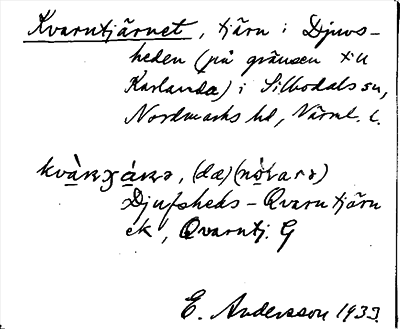 Kvarntjärnet, tjärn i Djuvs-
heden (på gränsen till
Karlanda) i Silbodals sn,
Nordmarks hd, Värml. l.
(da)
Djufsheds-Qvarntjärn
ek, Qvarntj. G
E. Andersson 1933.